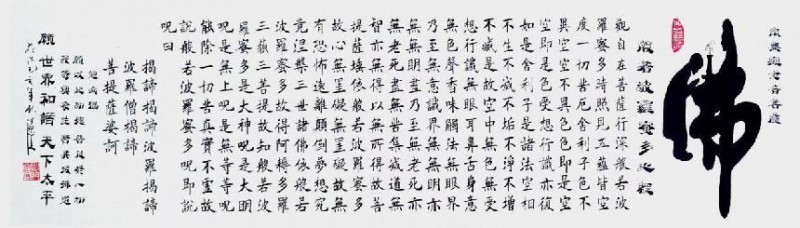 佛
般若波羅蜜多心經
觀自在菩薩行深般若波
羅蜜多時照見五蘊皆空
度一切苦厄舍利子色不
異空空不異色色即是空
空即是色受想行識亦復
如是舍利子是諸法空相
不生不滅不垢不淨不增
不減是故空中無色無受
想行識無眼耳鼻舌身意
無色聲香味觸法無眼界
乃至無意識界無無明亦
無無明盡乃至無老死亦
無老死盡無苦集滅道無
智亦無得以無所得故菩
提薩埵依般若波羅蜜多
故心無罣礙無罣礙故無
有恐怖遠離顛倒夢想究
竟涅槃三世諸佛依般若
波羅蜜多故得阿耨多羅
三藐三菩提故知般若波
羅蜜多是大神呪是大明
呪是無上呪是無等等呪
能除一切苦真實不虛故
說般若波羅蜜多呪即說
呪曰
揭諦揭諦波羅揭諦
波羅僧揭諦
菩提薩婆訶
願以此功德普及於一切
我等與眾生皆共成佛道
願世界和諧天下太平